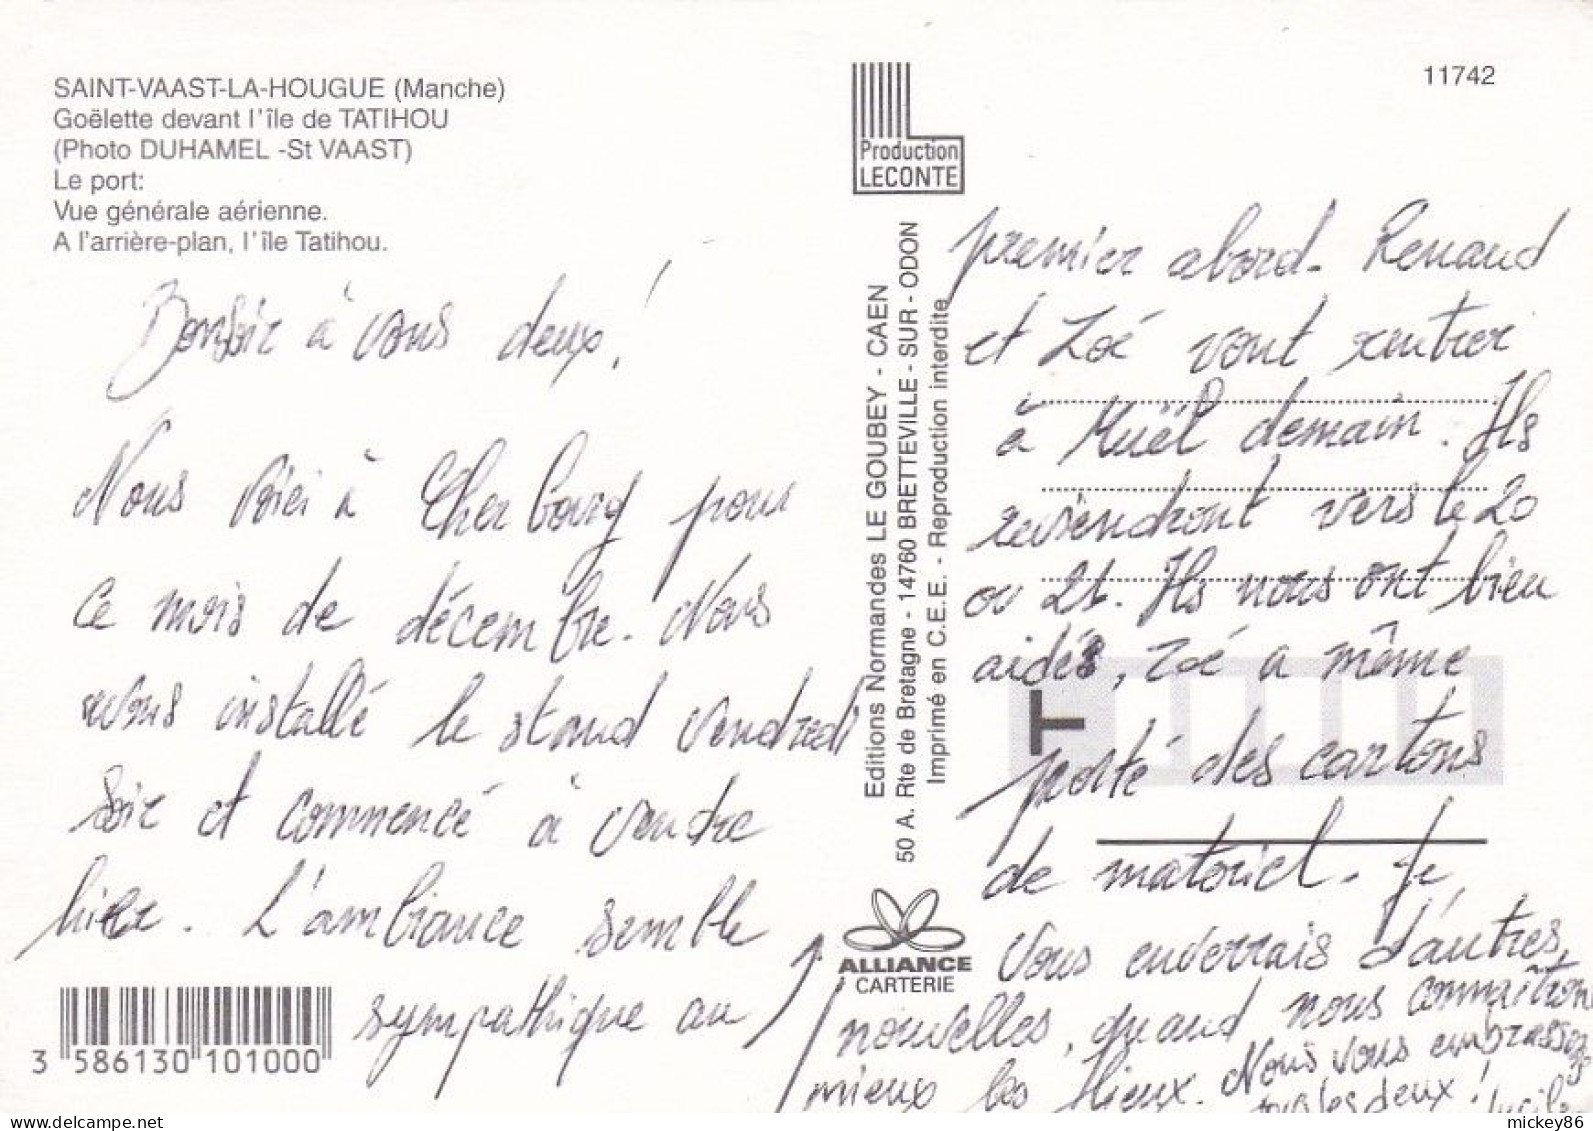 SAINT-VAAST-LA-HOUGUE (Manche)
Goëlette devant l'île de TATIHOU
(Photo DUHAMEL -St VAAST)
Le port:
Vue générale aérienne.
A l'arrière-plan, l'île Tatihou.
Bonsoir à vous deux!
Nous voici à Cherbourg pour
ce mois de décembre. Nous
avons installé le stand vendredi
soir et commencé à vendre
hier. L'ambiance semble
sympathique au
3 586130 101000
Production
LECONTE
Editions Normandes LE GOUBEY - CAEN
50 A. Rte de Bretagne - 14760 BRETTEVILLE - SUR - ODON
Imprimé en C.E.E. - Reproduction interdite
ALLIANCE
CARTERIE
11742
premier abord. Renaud
et Zoé vont rentrer
à Muël demain. Ils
reviendront vers le 20
ou 21. Ils nous ont bien
aidés, Zoé a même
T
porté des cartons
de matériel. Je
vous enverrais d'autres
nouvelles, quand nous connaîtrons
mieux les lieux. Nous vous embrassons
tous les deux! Lucile
delcampe.net
mickey86